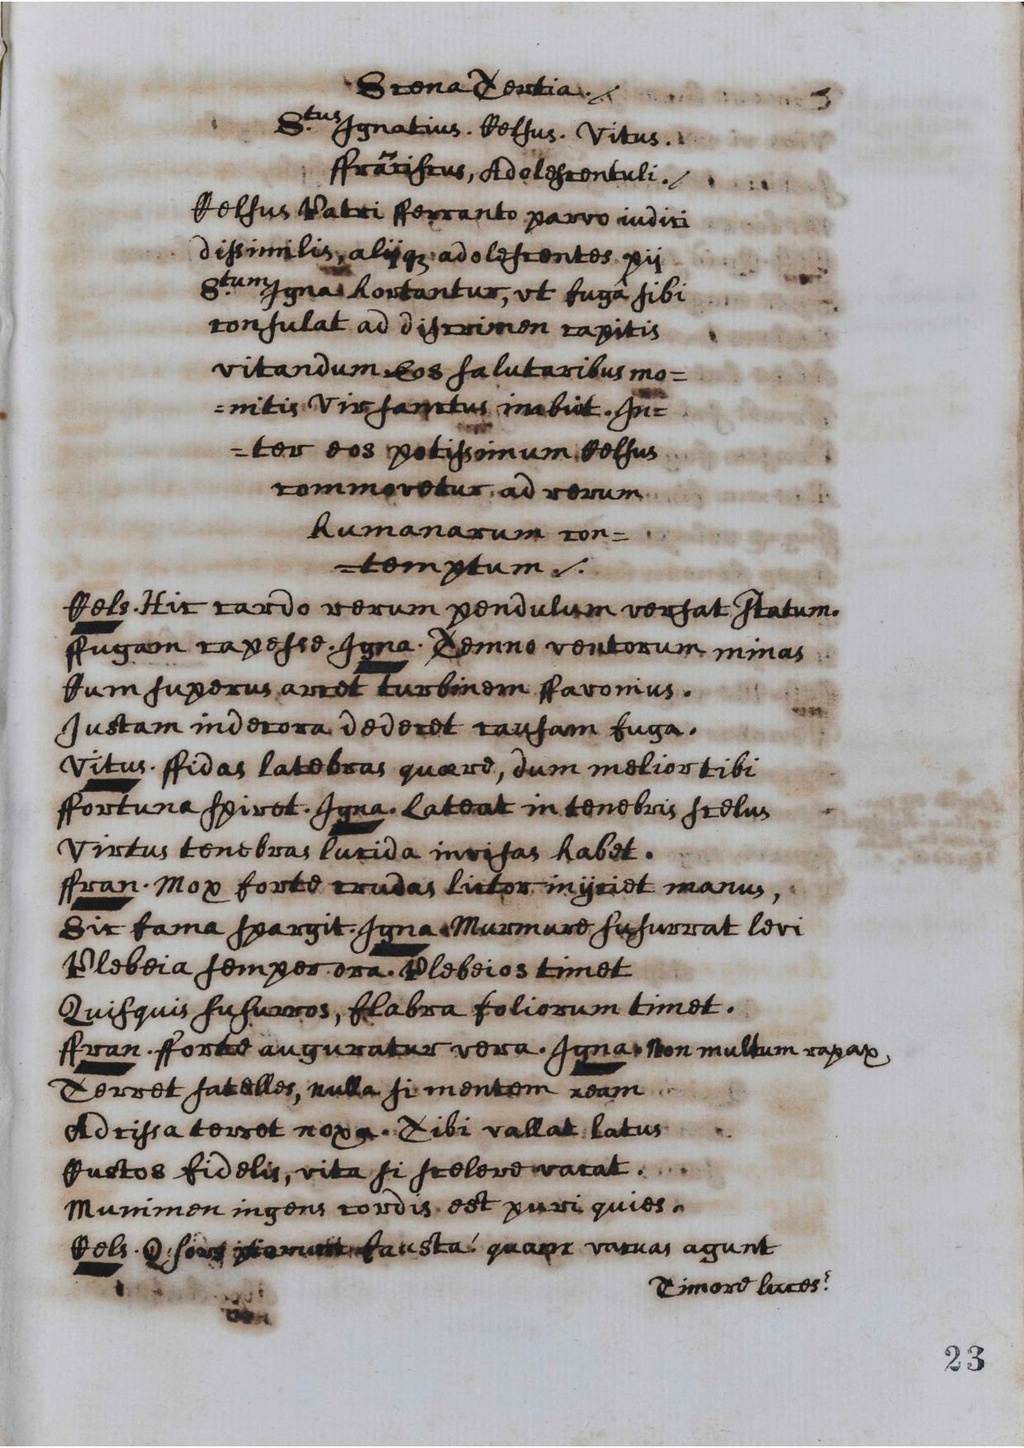 Scena Tertia.
S.tus Ignatius. Celsus. Vitus.
Frãciscus, Adolescentuli.
Celsus Patri Ferranto parvo iudici
dissimilis, alijq; adolescentes pij
S.tum Igna: hortantur, vt fugâ sibi
consulat ad discrimen capitis
vitandum. Eos salutaribus mo=
=nitis Vir sanctus imbuit. In=
=ter eos potissimum Celsus
commovetur ad rerum
humanarum con=
=temptum.
Cels. Hic cardo rerum pendulum versat statum.
Fugam capesse. Igna. Temno ventorum minas
Cum superus arcet turbinem Favonius.
Justam indecora dederet causam fuga.
Vitus. Fidas latebras quære, dum melior tibi
Fortuna spiret. Igna. Lateat in tenebris scelus
Virtus tenebras lucida invisas habet.
Fran. Mox forte crudas lictor inijciet manus,
Sic fama spargit. Igna. Murmure susurrat levi
Plebeia semper ora. Plebeios timet
Quisquis susurros, flabra foliorum timet.
Fran. Forte auguratur vera. Igna. Non multum rapax
Terret satelles, nulla si mentem ream
Adcissa terret noxa. Tibi vallat latus
Custos fidelis, vita si scelere vacat.
Munimen ingens cordis est puri quies.
Cels. O sors fausta! quam vacuas agunt
Timore luces!
23